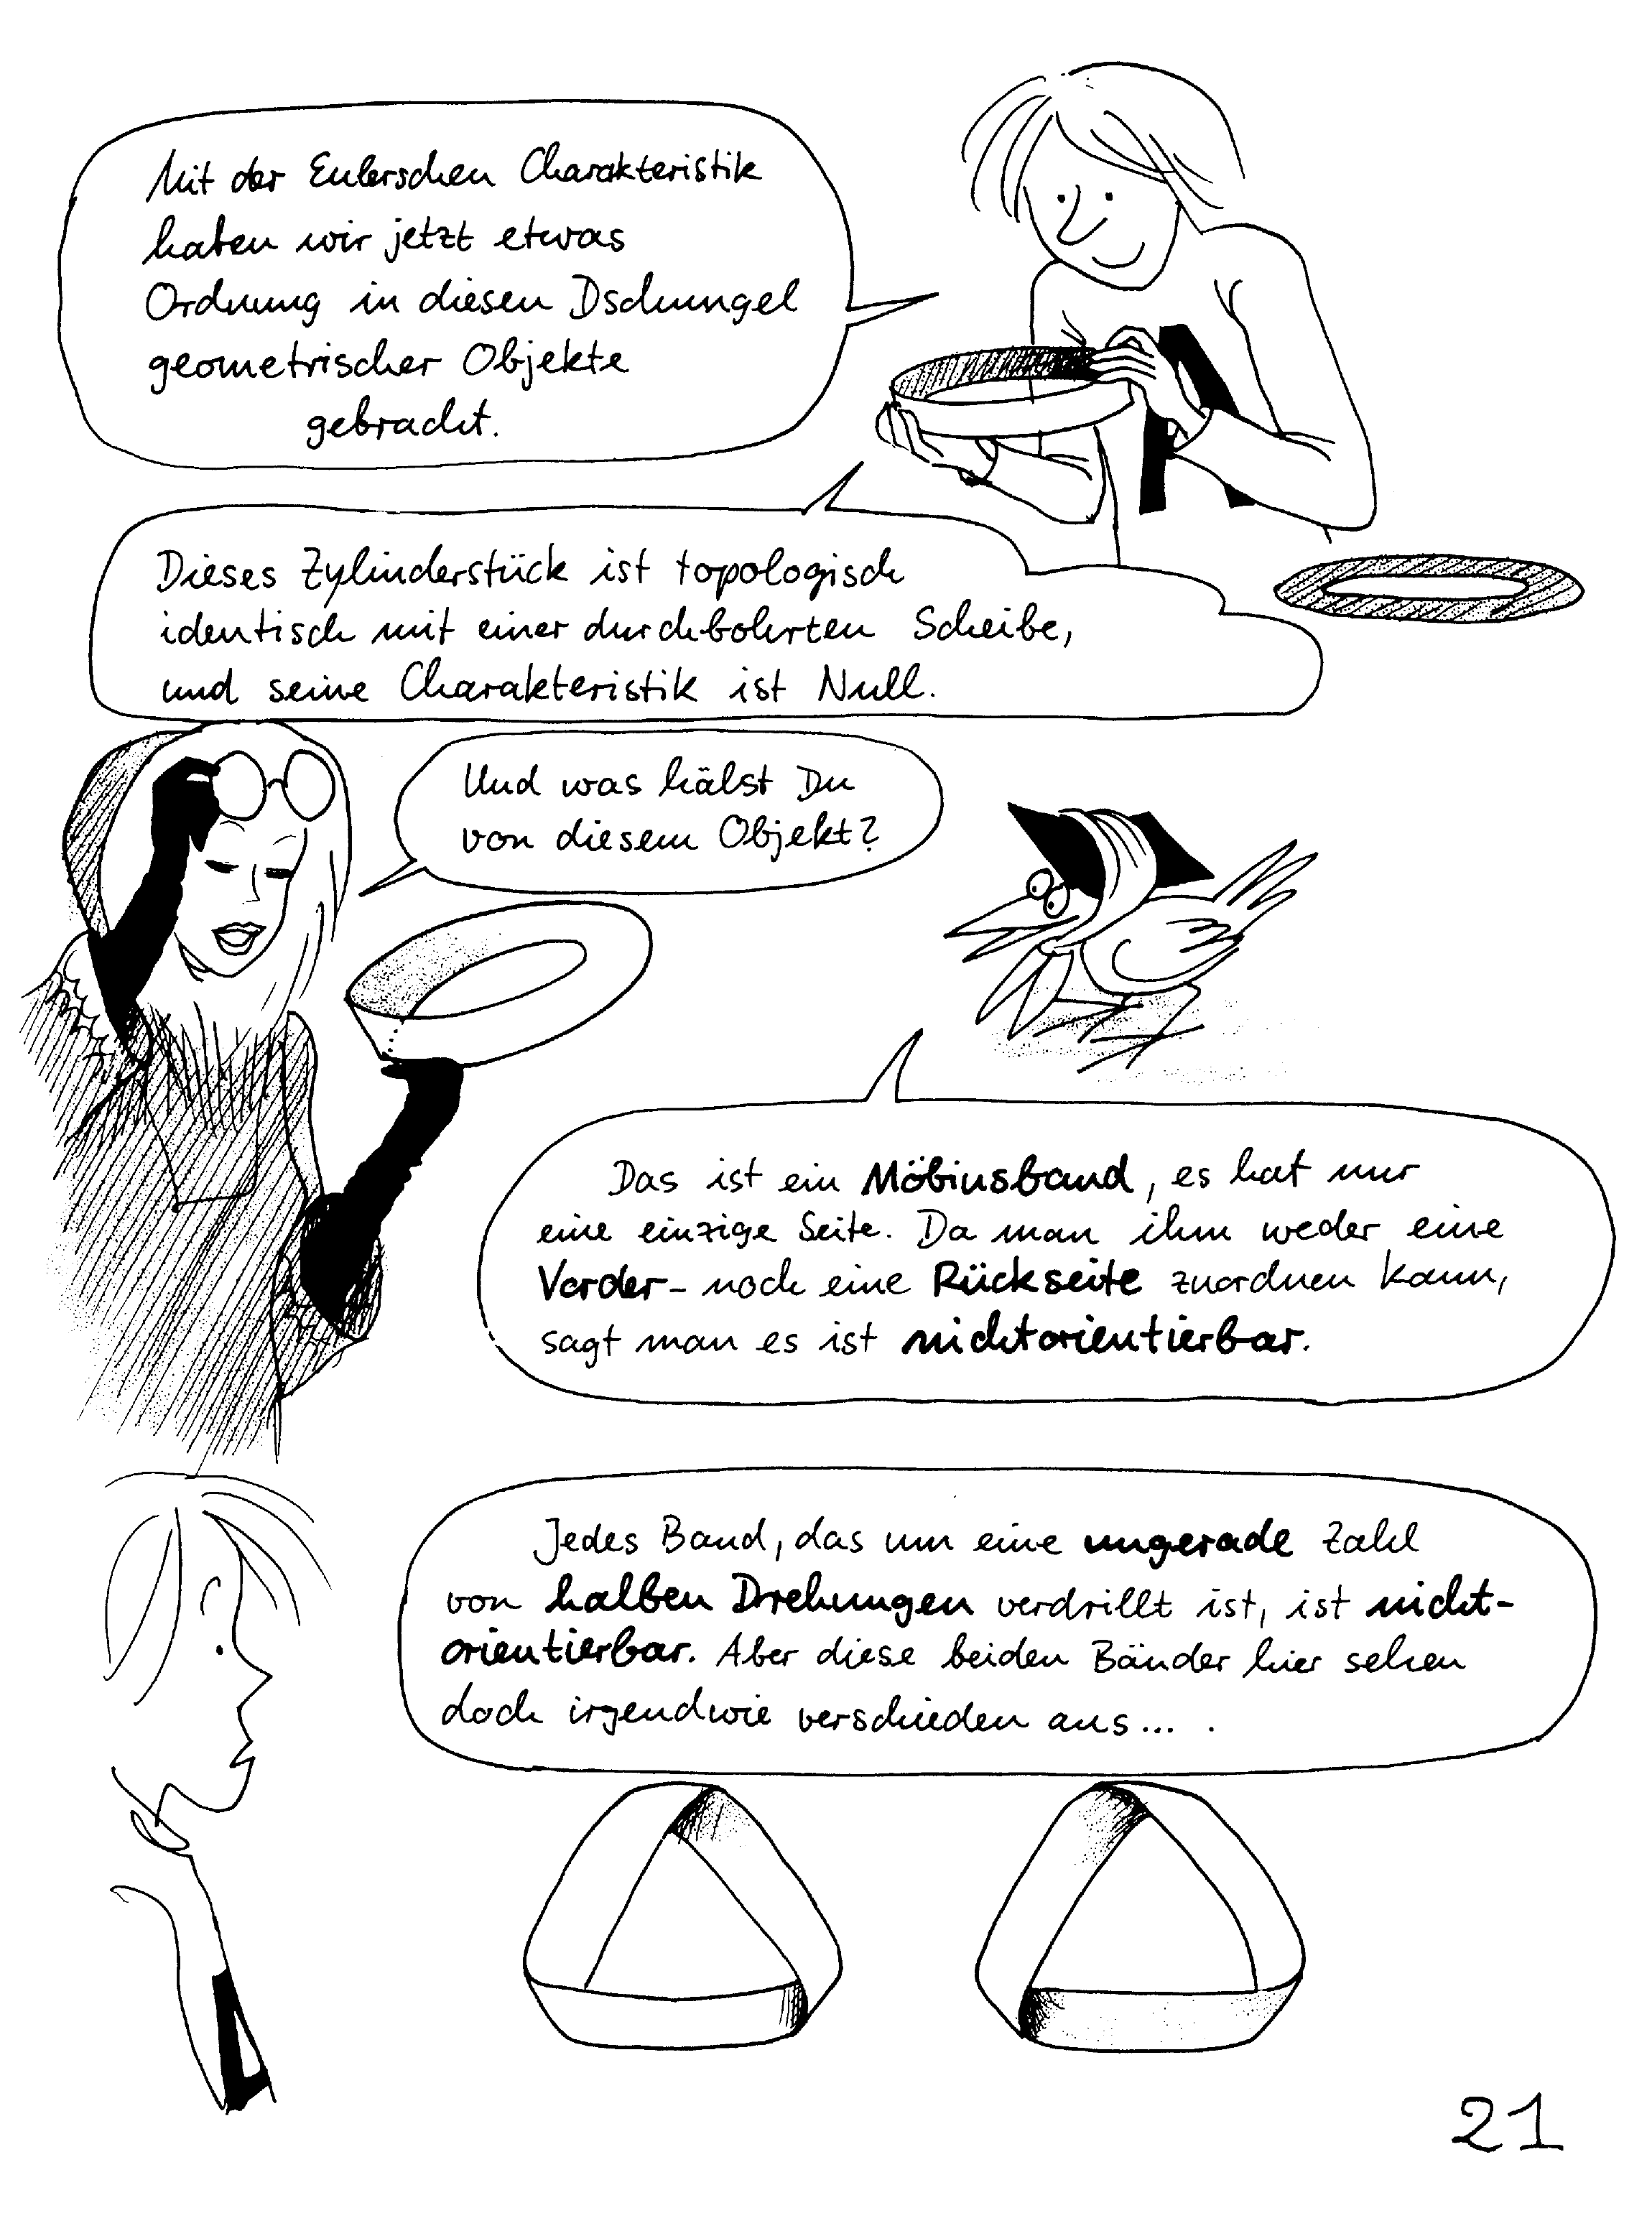 Mit der Eulerschen Charakteristik
haben wir jetzt etwas
Ordnung in diesen Dschungel
geometrischer Objekte
gebracht.
Dieses Zylinderstück ist topologisch
identisch mit einer durchbohrten Scheibe,
und seine Charakteristik ist Null.
Und was hälst Du
von diesem Objekt?
Das ist ein Möbiusband, es hat nur
eine einzige Seite. Da man ihm weder eine
Vorder- noch eine Rückseite zuordnen kann,
sagt man es ist nichtorientierbar.
Jedes Band, das um eine ungerade Zahl
von halben Drehungen verdrillt ist, ist nicht-
orientierbar. Aber diese beiden Bänder hier sehen
doch irgendwie verschieden aus... .
21